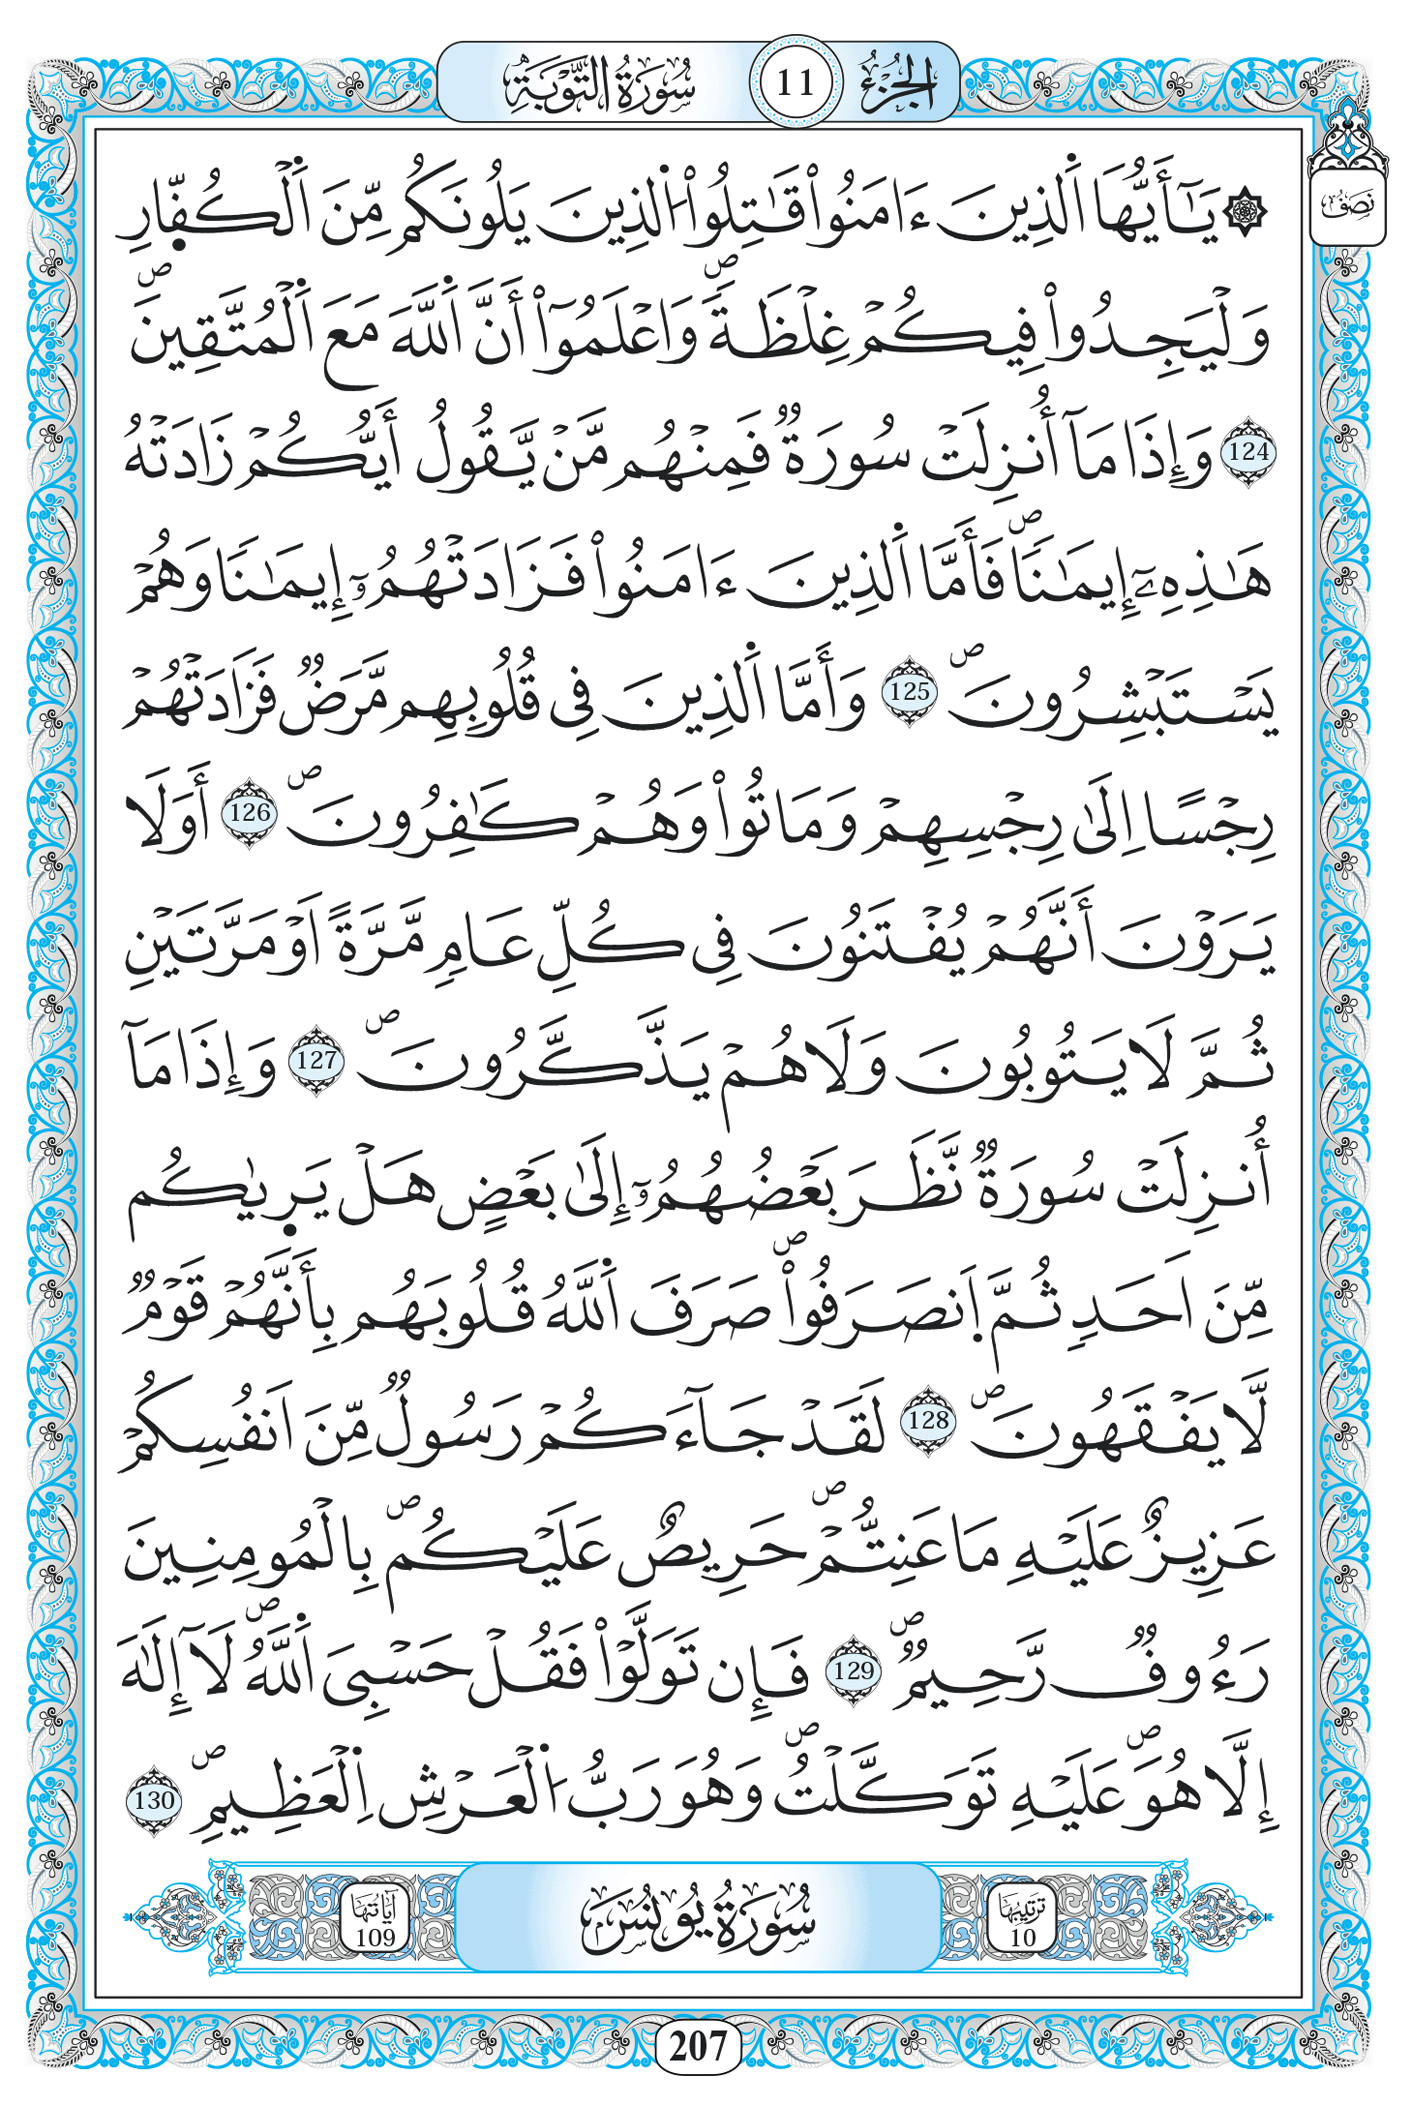 سُورَةُ التَّوْبَةِ 11 الجُزْءُ
نِصْفُ
۞ يَٰٓأَيُّهَا اَ۬لذِينَ ءَامَنُواْ قَٰتِلُواْ اُ۬لذِينَ يَلُونَكُم مِّنَ اَ۬لْكُفّ۪ارِ
وَلْيَجِدُواْ فِيكُمْ غِلْظَةٗۖ وَاعْلَمُوٓاْ أَنَّ اَ۬للَّهَ مَعَ اَ۬لْمُتَّقِينَۖ
124 وَإِذَا مَآ أُنزِلَتْ سُورَةٞ فَمِنْهُم مَّنْ يَّقُولُ أَيُّكُمْ زَادَتْهُ
هَٰذِهِۦٓ إِيمَٰناٗۖ فَأَمَّا اَ۬لذِينَ ءَامَنُواْ فَزَادَتْهُمُۥٓ إِيمَٰناٗ وَهُمْ
يَسْتَبْشِرُونَۖ 125 وَأَمَّا اَ۬لذِينَ فِي قُلُوبِهِم مَّرَضٞ فَزَادَتْهُمْ
رِجْساً اِلَىٰ رِجْسِهِمْ وَمَاتُواْ وَهُمْ كَٰفِرُونَۖ 126 أَوَلَا
يَرَوْنَ أَنَّهُمْ يُفْتَنُونَ فِي كُلِّ عَامٖ مَّرَّةً اَوْ مَرَّتَيْنِ
ثُمَّ لَا يَتُوبُونَ وَلَا هُمْ يَذَّكَّرُونَۖ 127 وَإِذَا مَآ
أُنزِلَتْ سُورَةٞ نَّظَرَ بَعْضُهُمُۥٓ إِلَىٰ بَعْضٍ هَلْ يَر۪يٰكُم
مِّنَ اَحَدٖ ثُمَّ اَ۪نصَرَفُواْۖ صَرَفَ اَ۬للَّهُ قُلُوبَهُم بِأَنَّهُمْ قَوْمٞ
لَّا يَفْقَهُونَۖ 128 لَقَدْ جَآءَكُمْ رَسُولٞ مِّنَ اَنفُسِكُمْ
عَزِيزٌ عَلَيْهِ مَا عَنِتُّمْۖ حَرِيصٌ عَلَيْكُمۖ بِالْمُومِنِينَ
رَءُوفٞ رَّحِيمٞۖ 129 فَإِن تَوَلَّوْاْ فَقُلْ حَسْبِيَ اَ۬للَّهُۖ لَآ إِلَٰهَ
إِلَّا هُوَۖ عَلَيْهِ تَوَكَّلْتُۖ وَهُوَ رَبُّ اُ۬لْعَرْشِ اِ۬لْعَظِيمِۖ 130
تَرْتِيبُهَا 10 سُورَةُ يُونُسَ آيَاتُهَا 109
207